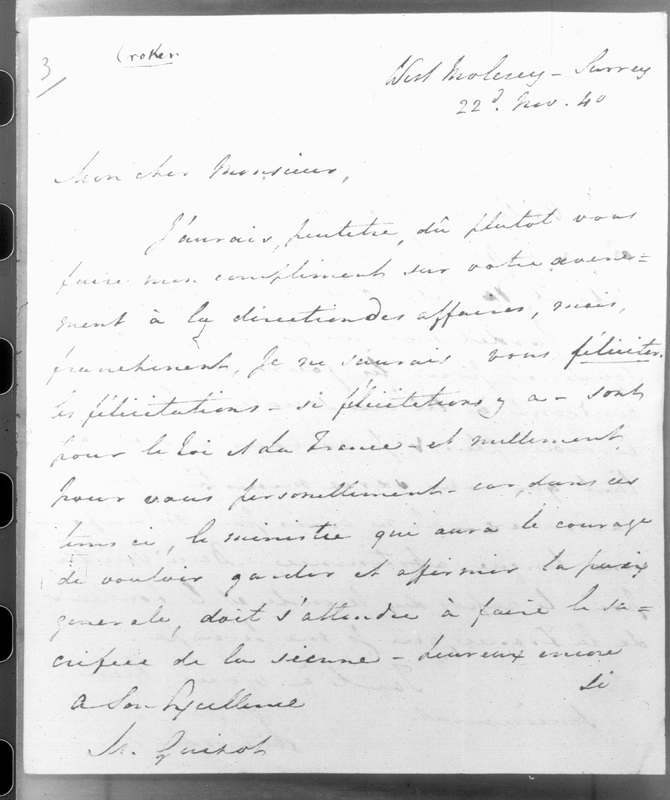 3
Croker.
West Molesey - Surrey
22d. Nov. 40
Mon cher Monsieur,
J'aurais, peutetre, dû plutot vous
faire mon compliment sur votre avene=
ment à la direction des affaires, mais,
franchement, Je ne saurais vous féliciter.
les félicitations - si félicitations y a - sont
pour le Roi et la France - et nullement
pour vous personellement - car, dans ces
tems ci, le ministre qui aura le courage
de vouloir garder et affirmir la paix
generale, doit s'attendre à faire le sa=
crifice de la sienne - heureux encore
si
A Son Excellence
M. Guizot